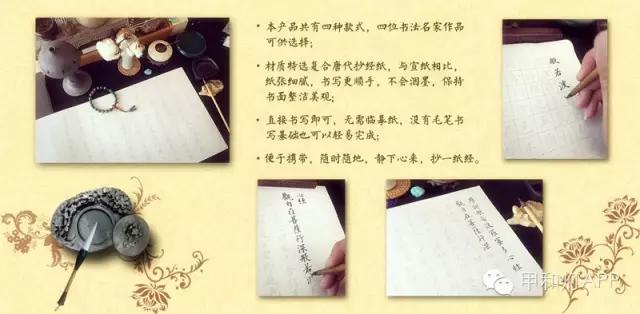 • 本产品共有四种款式，四位书法名家作品
可供选择；
• 材质特选复合唐代抄经纸，与宣纸相比，
纸张细腻，书写更顺手，不会洇墨，保持
书面整洁美观；
• 直接书写即可，无需临摹纸，没有毛笔书
写基础也可以轻易完成；
• 便于携带，随时随地，静下心来，抄一纸经。
般若波
心经
观自在菩萨行深般若
摩诃般若波罗蜜多心经
观自在菩萨行深
甲和灯APP